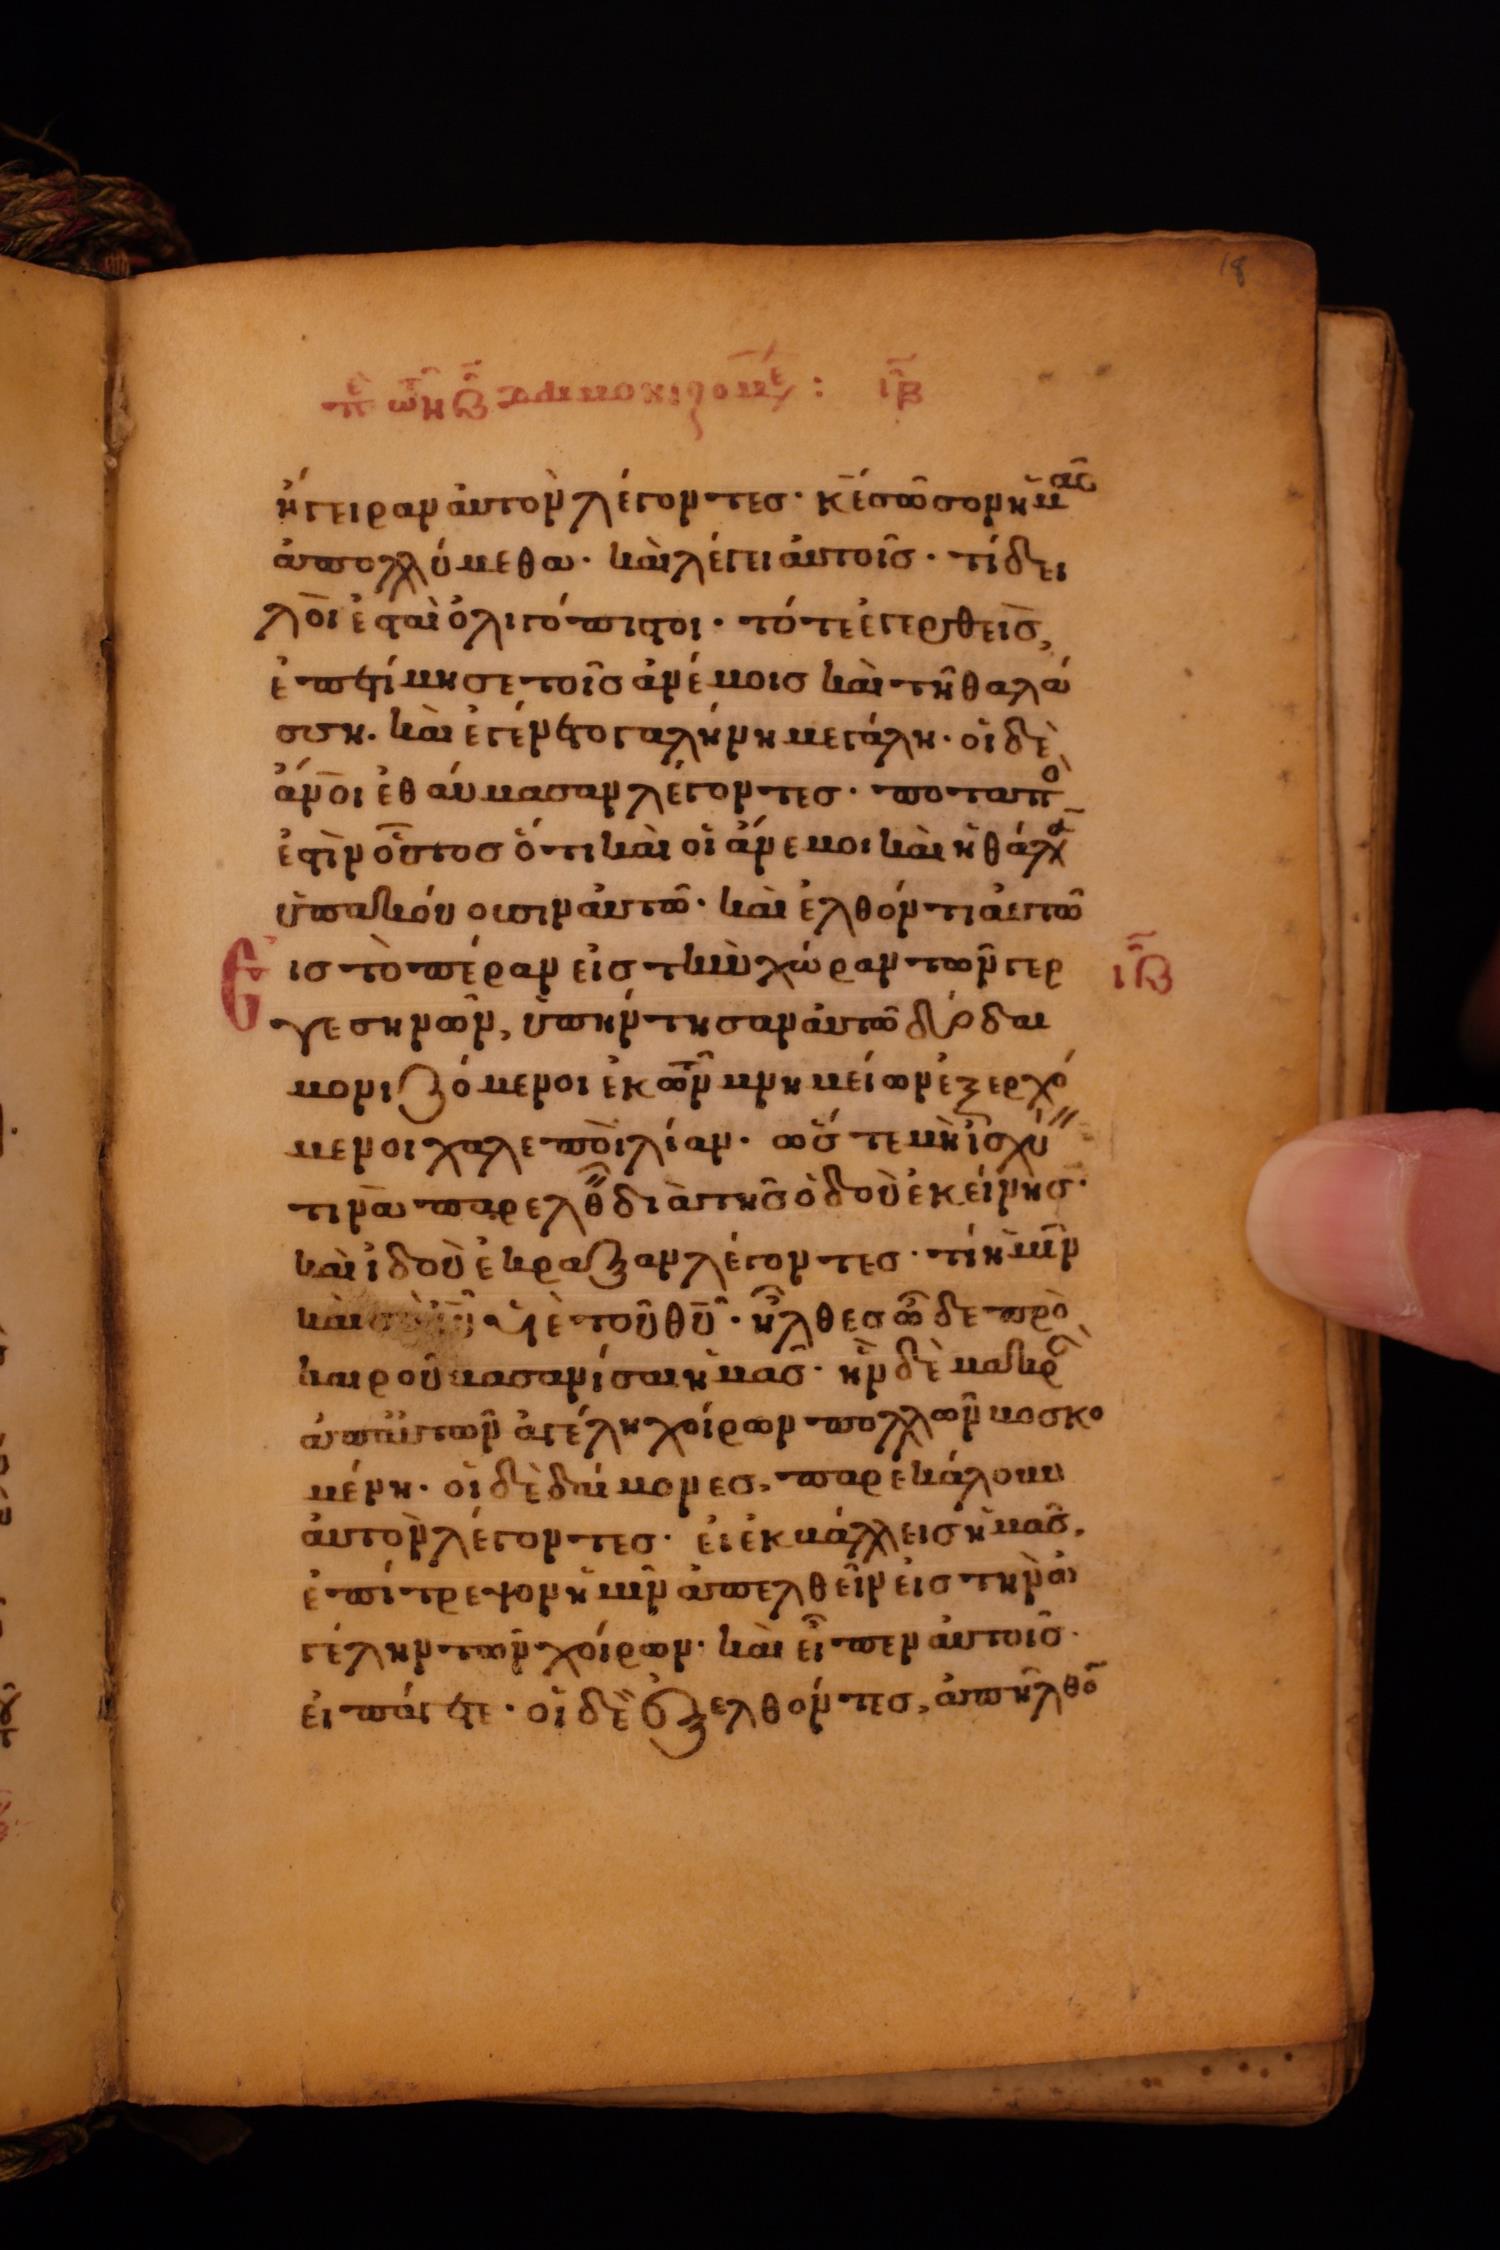 18
πε τῶν β δαιμονιζομέ : ιβ
ἤγειραν αὐτὸν λέγοντες· κ̅ε σῶσον ἡμᾶς
ἀπολλύμεθα· καὶ λέγει αὐτοῖς· τί δει
λοί ἐσται ὀλιγόπιστοι· τότε ἐγερθεὶς,
ἐπετίμησε τοῖς ἀνέμοις καὶ τῆ θαλά
σση. καὶ ἐγένετο γαλήνη μεγάλη· οἱ δὲ
ἄν̅οι ἐθαύμασαν λέγοντες· ποταπὸ
ἐστὶν οὗτος ὅτι καὶ οἱ ἄνεμοι καὶ ἡ θάλα
ὑπακούουσιν αὐτῶ· καὶ ἐλθόντι αὐτῶ
Εἰς τὸ πέραν εἰς τὴν χώραν τῶν γερ ιβ
γεσηνῶν, ὑπήντησαν αὐτῶ δύο δαι
μονιζόμενοι ἐκ τῶν μνημείων ἐξερχό
μενοι χαλεποὶ λίαν· ὥστε μὴ ἰσχύ
τινὰ παρελθ διὰ τῆς ὁδοῦ ἐκείνης·
καὶ ἰδοὺ ἔκραξαν λέγοντες· τί ἡμῖν
καὶ σοὶ ι̅υ υἱὲ τοῦ θ̅υ· ἦλθες ὧδε πρὸ
καιροῦ βασανίσαι ἡμᾶς· ἦν δὲ μακρὰ
ἀπ' αὐτῶν ἀγέλη χοίρων πολλῶν βοσκο
μένη· οἱ δὲ δαίμονες, παρεκάλουν
αὐτὸν λέγοντες· εἰ ἐκβάλλεις ἡμᾶς,
ἐπίτρεψον ἡμῖν ἀπελθεῖν εἰς τὴν ἀ
γέλην τῶν χοίρων· καὶ εἶπεν αὐτοῖς·
ὑπάγετε· οἱ δὲ ἐξελθόντες, ἀπῆλθο